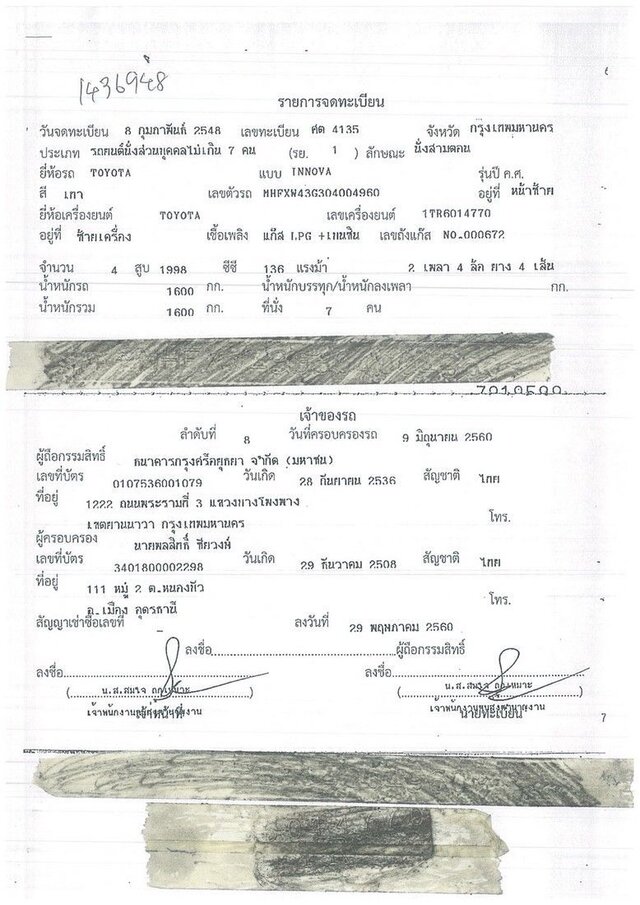 1436948
รายการจดทะเบียน
วันจดทะเบียน 8 กุมภาพันธ์ 2548 เลขทะเบียน ศต 4135 จังหวัด กรุงเทพมหานคร
ประเภท รถยนต์นั่งส่วนบุคคลไม่เกิน 7 คน (รย. 1 ) ลักษณะ นั่งสามตอน
ยี่ห้อรถ TOYOTA แบบ INNOVA รุ่นปี ค.ศ.
สี เทา เลขตัวรถ MHFXW43G304004960 อยู่ที่ หน้าซ้าย
ยี่ห้อเครื่องยนต์ TOYOTA เลขเครื่องยนต์ 1TR6014770
อยู่ที่ ซ้ายเครื่อง เชื้อเพลิง แก๊ส LPG +เบนซิน เลขถังแก๊ส NO.000672
จำนวน 4 สูบ 1998 ซีซี 136 แรงม้า 2 เพลา 4 ล้อ ยาง 4 เส้น
น้ำหนักรถ 1600 กก. น้ำหนักบรรทุก/น้ำหนักลงเพลา กก.
น้ำหนักรวม 1600 กก. ที่นั่ง 7 คน
เจ้าของรถ
ลำดับที่ 8 วันที่ครอบครองรถ 9 มิถุนายน 2560
ผู้ถือกรรมสิทธิ์ ธนาคารกรุงศรีอยุธยา จำกัด (มหาชน)
เลขที่บัตร 0107536001079 วันเกิด 28 กันยายน 2536 สัญชาติ ไทย
ที่อยู่ 1222 ถนนพระรามที่ 3 แขวงบางโพงพาง
เขตยานนาวา กรุงเทพมหานคร โทร.
ผู้ครอบครอง นายพลสิทธิ์ ชัยวงษ์
เลขที่บัตร 3401800002298 วันเกิด 29 ธันวาคม 2508 สัญชาติ ไทย
ที่อยู่ 111 หมู่ 2 ต.หนองบัว
อ.เมือง อุดรธานี โทร.
สัญญาเช่าซื้อเลขที่ - ลงวันที่ 29 พฤษภาคม 2560
ลงชื่อ ผู้ถือกรรมสิทธิ์
ลงชื่อ ลงชื่อ
นายทะเบียน
7